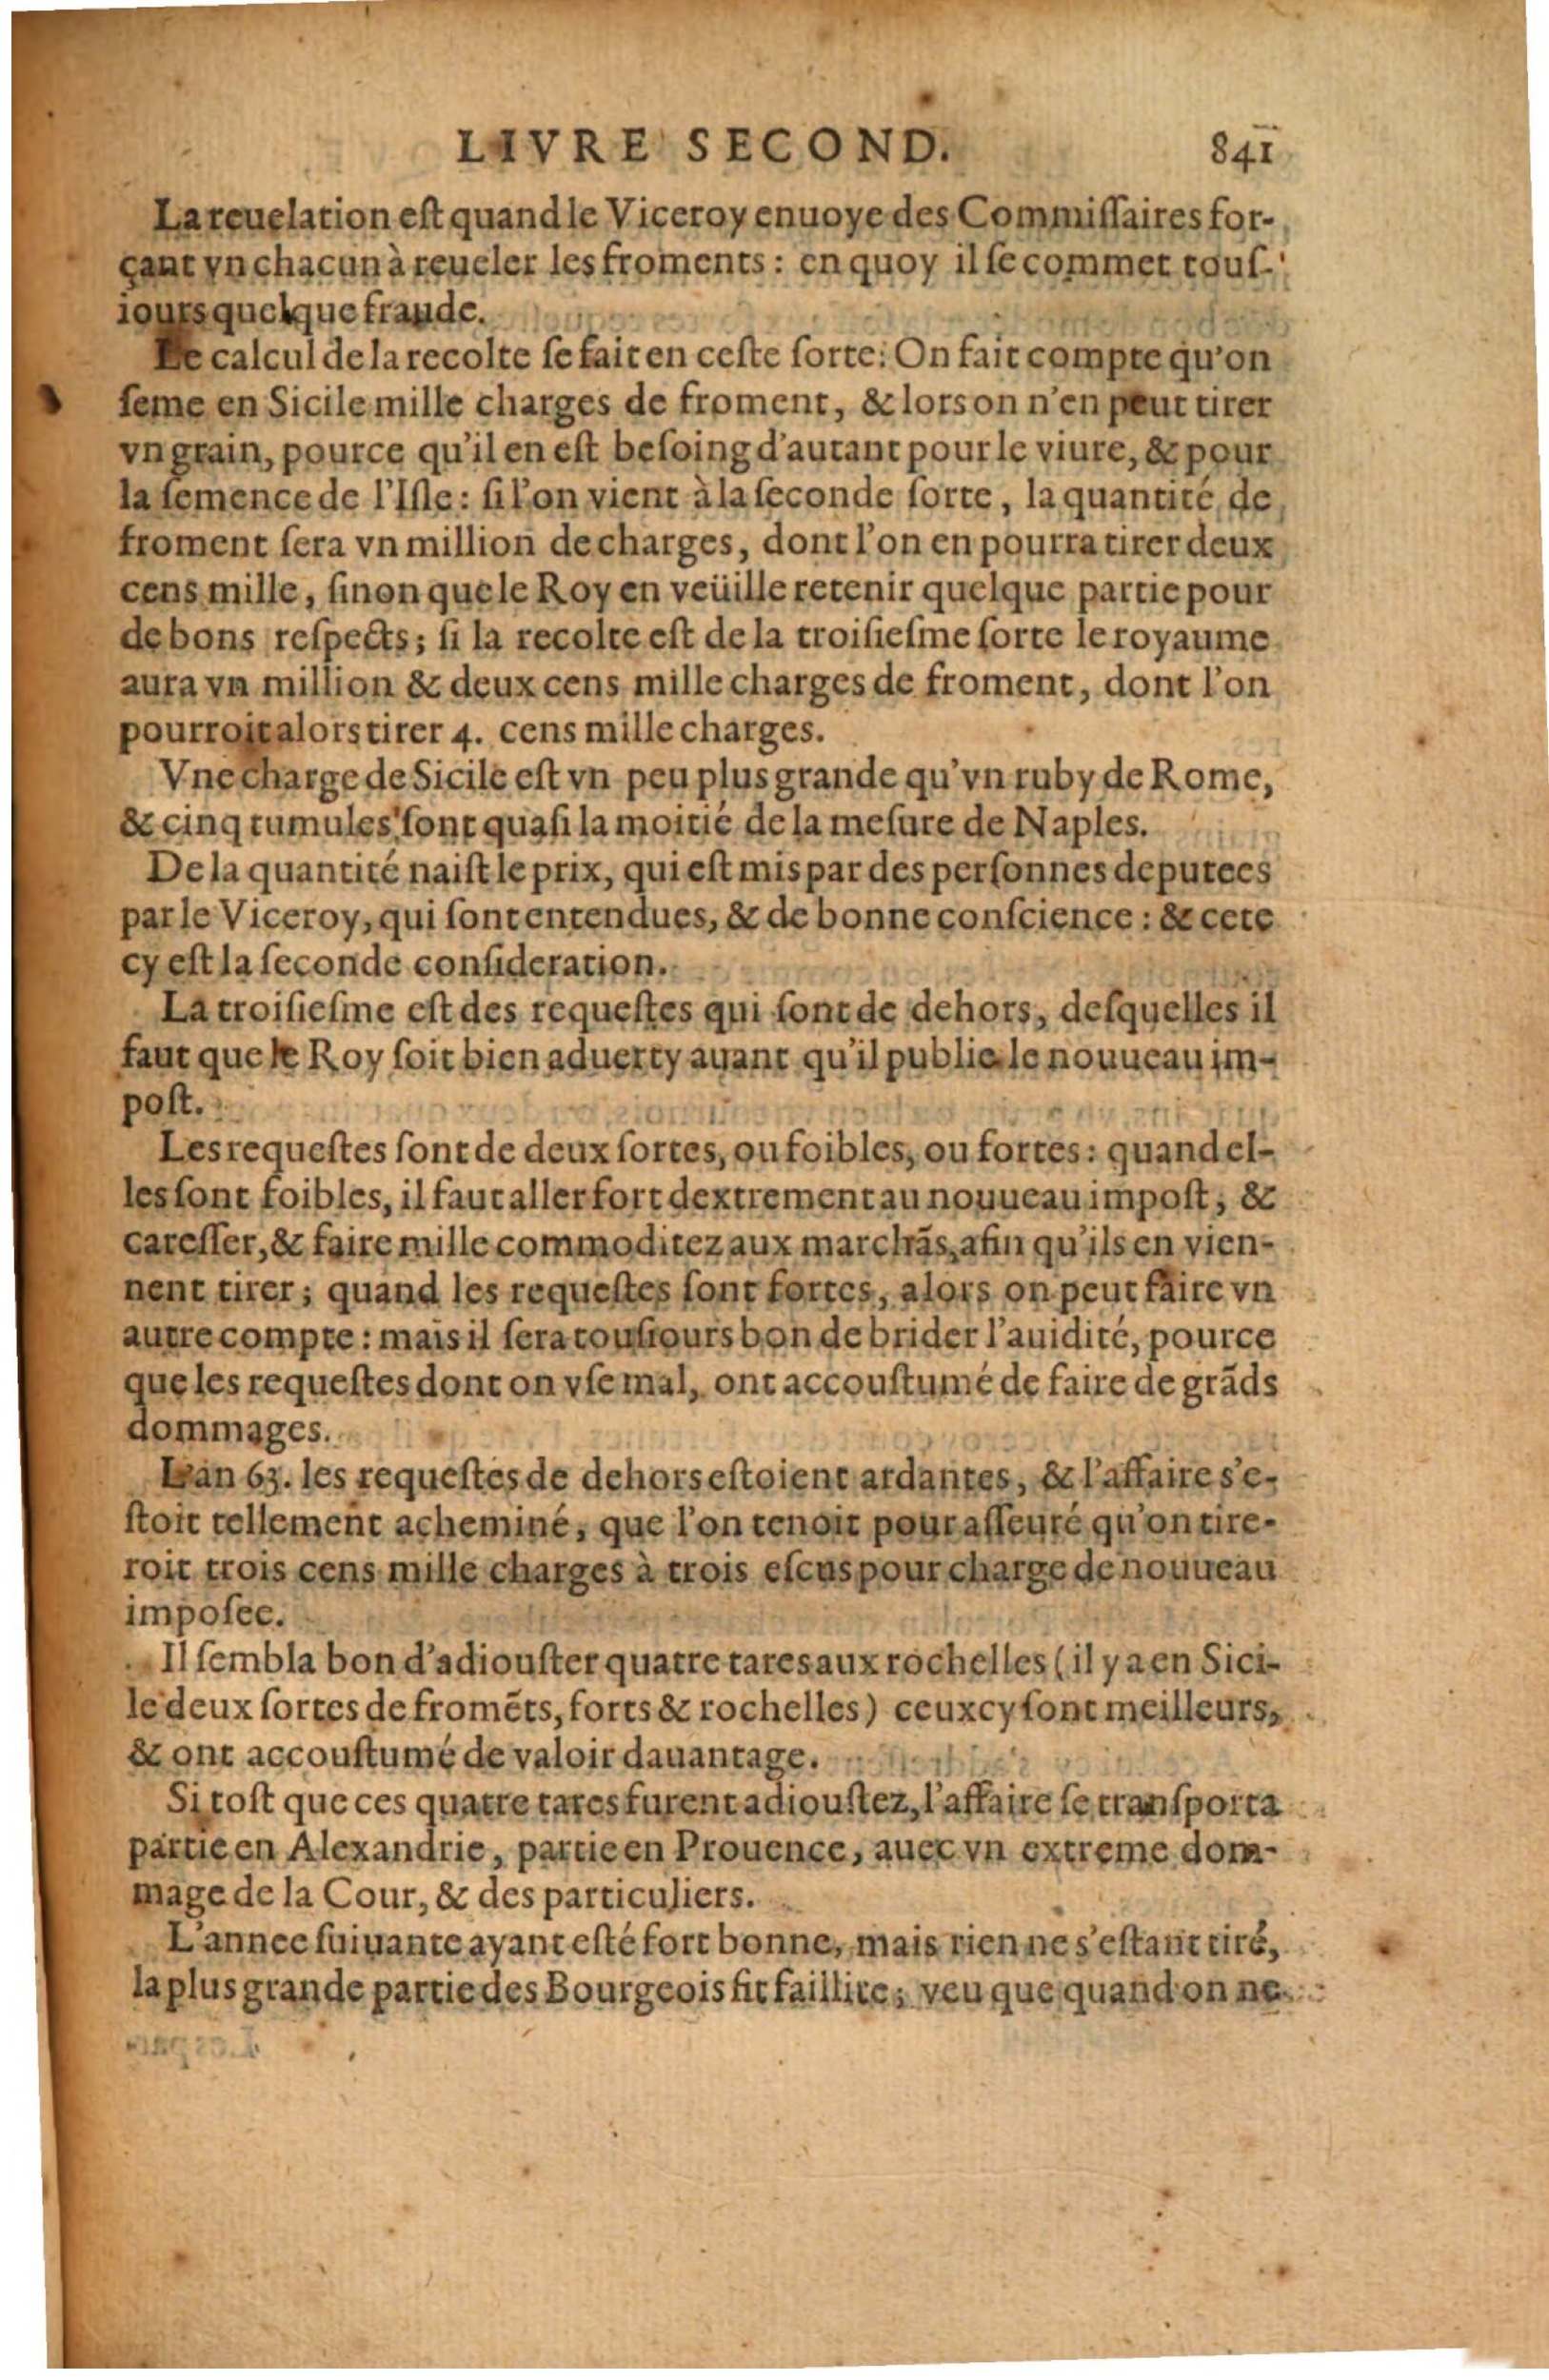 LIVRE SECOND. 841
La reuelation eſt quand le Viceroy enuoye des Commiſſaires for-
çant vn chacun à reueler les froments : en quoy il ſe commet touſ-
iours quelque fraude.
Le calcul de la recolte ſe fait en ceſte ſorte: On fait compte qu'on
ſeme en Sicile mille charges de froment, & lors on n'en peut tirer
vn grain, pource qu'il en eſt beſoing d'autant pour le viure, & pour
la ſemence de l'Iſle : ſi l'on vient à la ſeconde ſorte, la quantité de
froment ſera vn million de charges, dont l'on en pourra tirer deux
cens mille, ſinon que le Roy en veüille retenir quelque partie pour
de bons reſpects; ſi la recolte eſt de la troiſieſme ſorte le royaume
aura vn million & deux cens mille charges de froment, dont l'on
pourroit alors tirer 4. cens mille charges.
Vne charge de Sicile eſt vn peu plus grande qu'vn ruby de Rome,
& cinq tumules ſont quaſi la moitié de la meſure de Naples.
De la quantité naiſt le prix, qui eſt mis par des perſonnes deputees
par le Viceroy, qui ſont entendues, & de bonne conſcience : & cete
cy eſt la ſeconde conſideration.
La troiſieſme eſt des requeſtes qui ſont de dehors, deſquelles il
faut que le Roy ſoit bien aduerty auant qu'il publie le nouueau im-
poſt.
Les requeſtes ſont de deux ſortes, ou foibles, ou fortes : quand el-
les ſont foibles, il faut aller fort dextrement au nouueau impoſt, &
careſſer, & faire mille commoditez aux marchãs, afin qu'ils en vien-
nent tirer ; quand les requeſtes ſont fortes, alors on peut faire vn
autre compte : mais il ſera touſiours bon de brider l'auidité, pource
que les requeſtes dont on vſe mal, ont accouſtumé de faire de grãds
dommages.
L'an 63. les requeſtes de dehors eſtoient ardantes, & l'affaire s'e-
ſtoit tellement acheminé, que l'on tenoit pour aſſeuré qu'on tire-
roit trois cens mille charges à trois eſcus pour charge de nouueau
impoſee.
Il ſembla bon d'adiouſter quatre tares aux rochelles (il y a en Sici-
le deux ſortes de fromẽts, forts & rochelles) ceuxcy ſont meilleurs,
& ont accouſtumé de valoir dauantage.
Si toſt que ces quatre tares furent adiouſtez, l'affaire ſe tranſporta
partie en Alexandrie, partie en Prouence, auec vn extreme dom-
mage de la Cour, & des particuliers.
L'annee ſuiuante ayant eſté fort bonne, mais rien ne s'eſtant tiré,
la plus grande partie des Bourgeois fit faillite ; veu que quand on ne